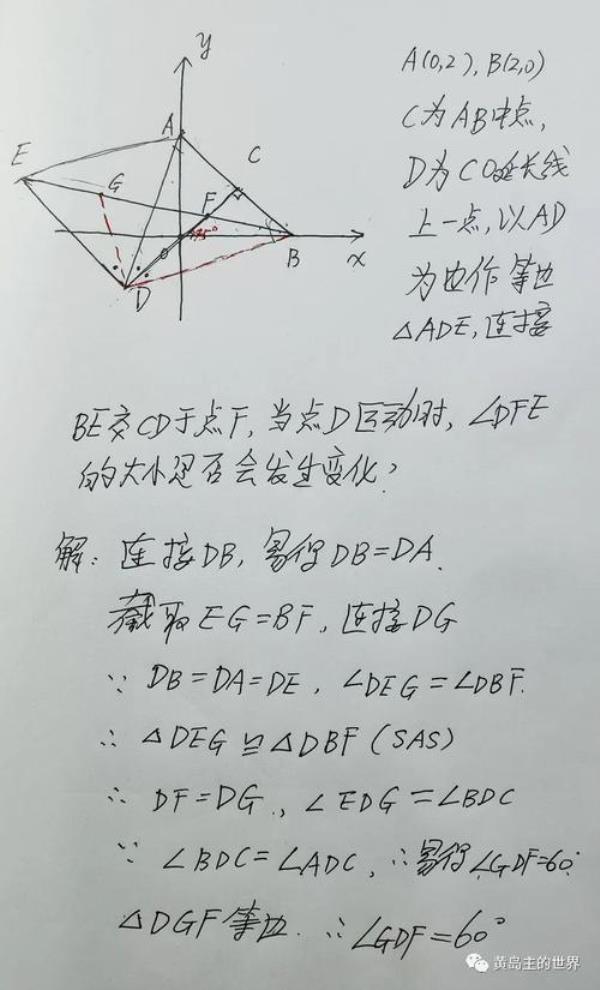 y
A
E
C
G
F
75°
B
x
D
A(0,2), B(2,0)
C为AB中点,
D为CO延长线
上一点,以AD
为边作等边
△ADE,连接
BE交CD于点F,当点D运动时,∠DFE
的大小是否会发生变化?
解:连接DB,易得DB=DA.
截取EG=BF,连接DG
∵ DB=DA=DE, ∠DEG=∠DBF.
∴ △DEG≌△DBF(SAS)
∴ DF=DG, ∠EDG=∠BDC
∵ ∠BDC=∠ADC, ∴易得∠GDF=60°.
△DGF等边. ∴∠GDF=60°
黄岛主的世界